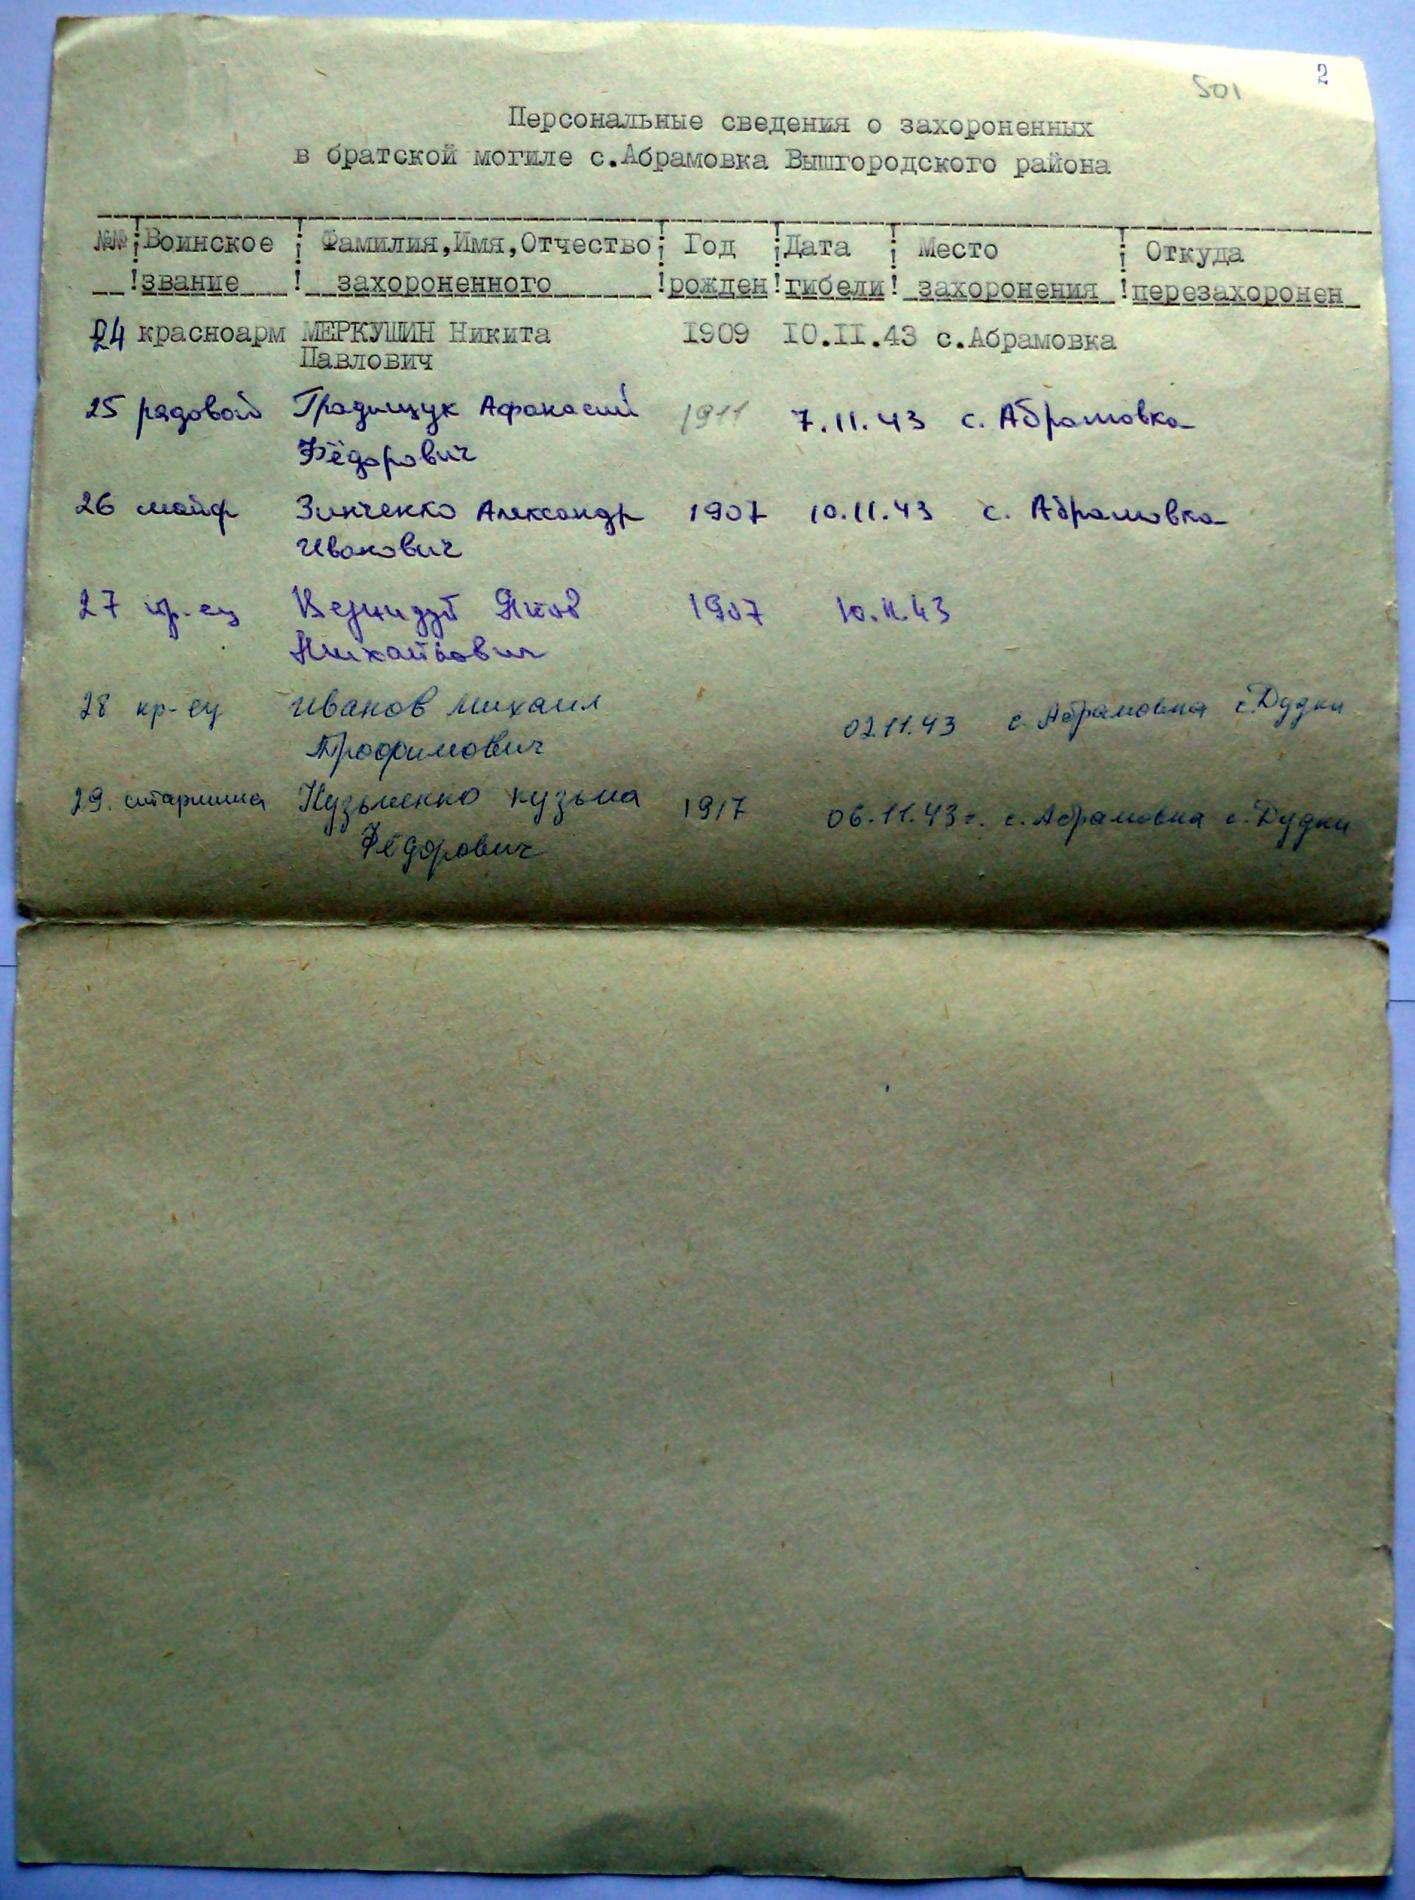 501 2
Персональные сведения о захороненных
в братской могиле с.Абрамовка Вышгородского района
№№ Воинское Фамилия,Имя,Отчество Год Дата Место Откуда
звание захороненного рожден гибели захоронения перезахоронен
24 красноарм МЕРКУШИН Никита 1909 10.II.43 с.Абрамовка
Павлович
25 рядовой Градищук Афанасий 1911 7.11.43 с. Абрамовка
Фёдорович
26 Зинченко Александр 1907 10.11.43 с. Абрамовка
Иванович
27 кр-ец Яков 1907 10.11.43
Михайлович
28 кр-ец Иванов Михаил 02.11.43 с. Абрамовка с.Дудки
Трофимович
29. старшина Кузьменко Кузьма 1917 06.11.43г. с. Абрамовка с.Дудки
Фёдорович